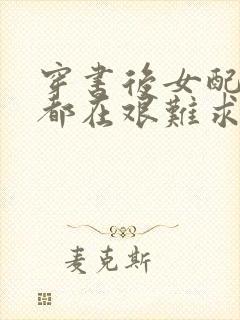 穿書後女配
都在艱難求
麦克斯